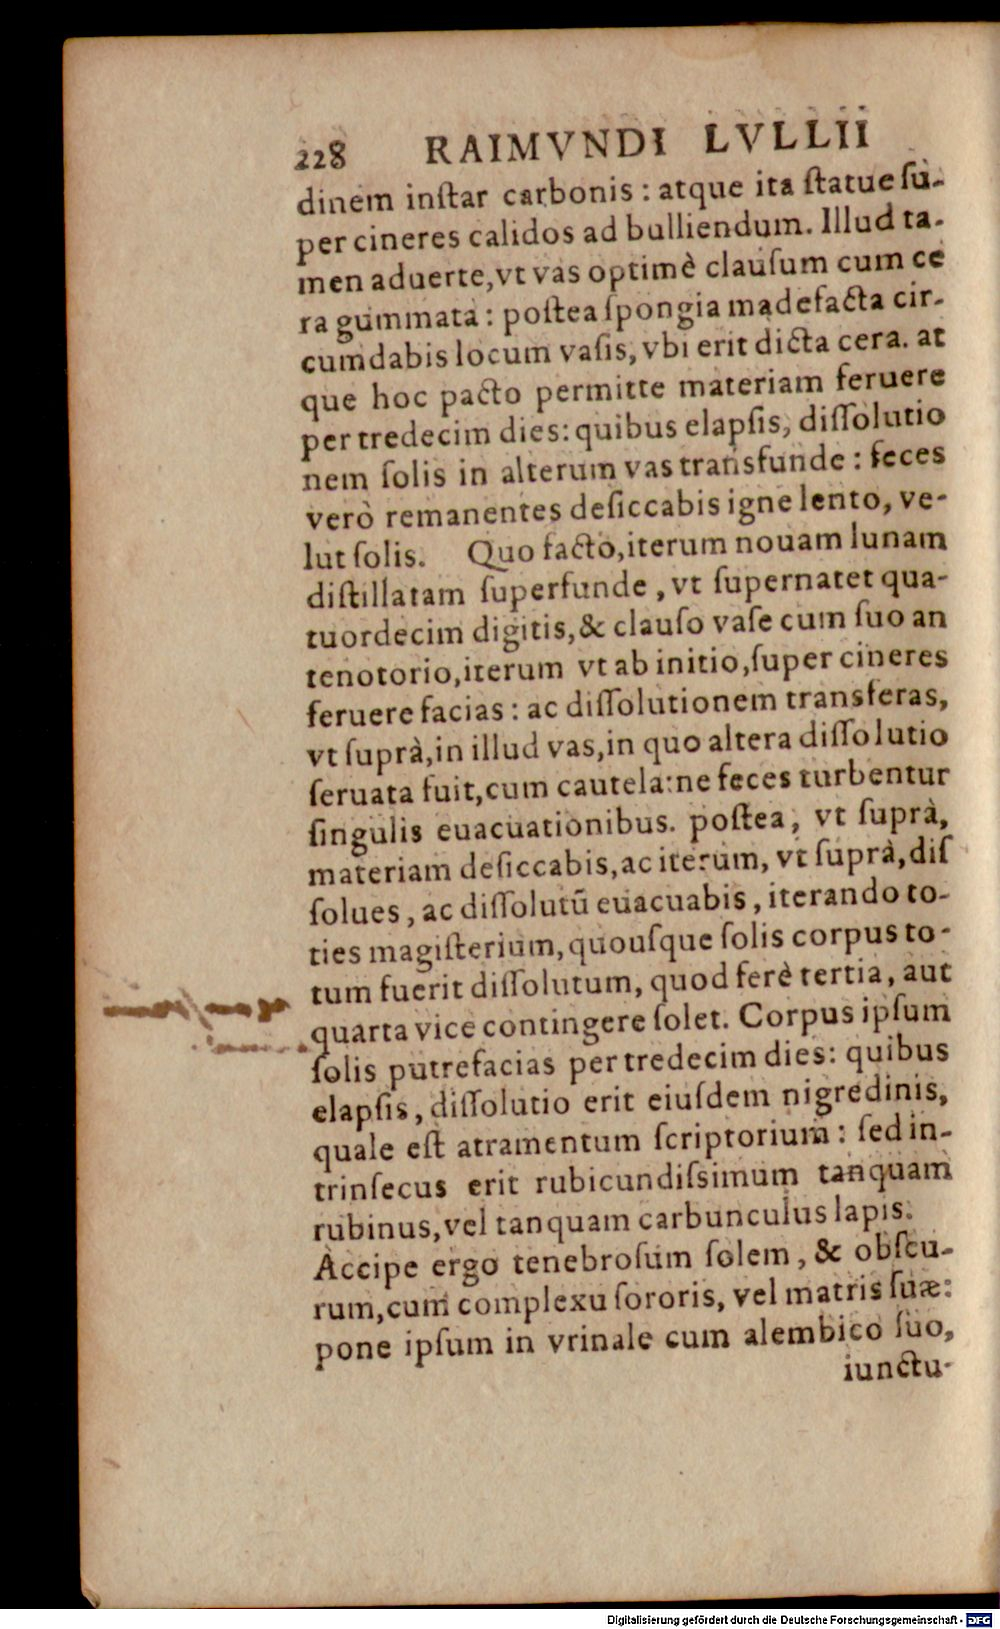 228 RAIMVNDI LVLLII
dinem inſtar carbonis : atque ita ſtatue ſu-
per cineres calidos ad bulliendum. Illud ta-
men aduerte, vt vas optimè clauſum cum ce
ra gummata : poſtea ſpongia madefacta cir-
cumdabis locum vaſis, vbi erit dicta cera. at
que hoc pacto permitte materiam feruere
per tredecim dies: quibus elapſis, diſſolutio
nem ſolis in alterum vas transfunde : feces
verò remanentes deſiccabis igne lento, ve-
lut ſolis. Quo facto, iterum nouam lunam
diſtillatam ſuperfunde , vt ſupernatet qua-
tuordecim digitis, & clauſo vaſe cum ſuo an
tenotorio, iterum vt ab initio, ſuper cineres
feruere facias : ac diſſolutionem transferas,
vt ſuprà, in illud vas, in quo altera diſſolutio
ſeruata fuit, cum cautela: ne feces turbentur
ſingulis euacuationibus. poſtea, vt ſuprà,
materiam deſiccabis, ac iterum, vt ſuprà, diſ
ſolues , ac diſſolutū euacuabis , iterando to-
ties magiſterium, quouſque ſolis corpus to-
tum fuerit diſſolutum, quod ferè tertia, aut
quarta vice contingere ſolet. Corpus ipſum
ſolis putrefacias per tredecim dies: quibus
elapſis, diſſolutio erit eiuſdem nigredinis,
quale eſt atramentum ſcriptorium : ſed in-
trinſecus erit rubicundiſsimum tanquam
rubinus, vel tanquam carbunculus lapis.
Accipe ergo tenebroſum ſolem, & obſcu-
rum, cum complexu ſororis, vel matris ſuæ:
pone ipſum in vrinale cum alembico ſuo,
iunctu-
Digitalisierung gefördert durch die Deutsche Forschungsgemeinschaft - DFG